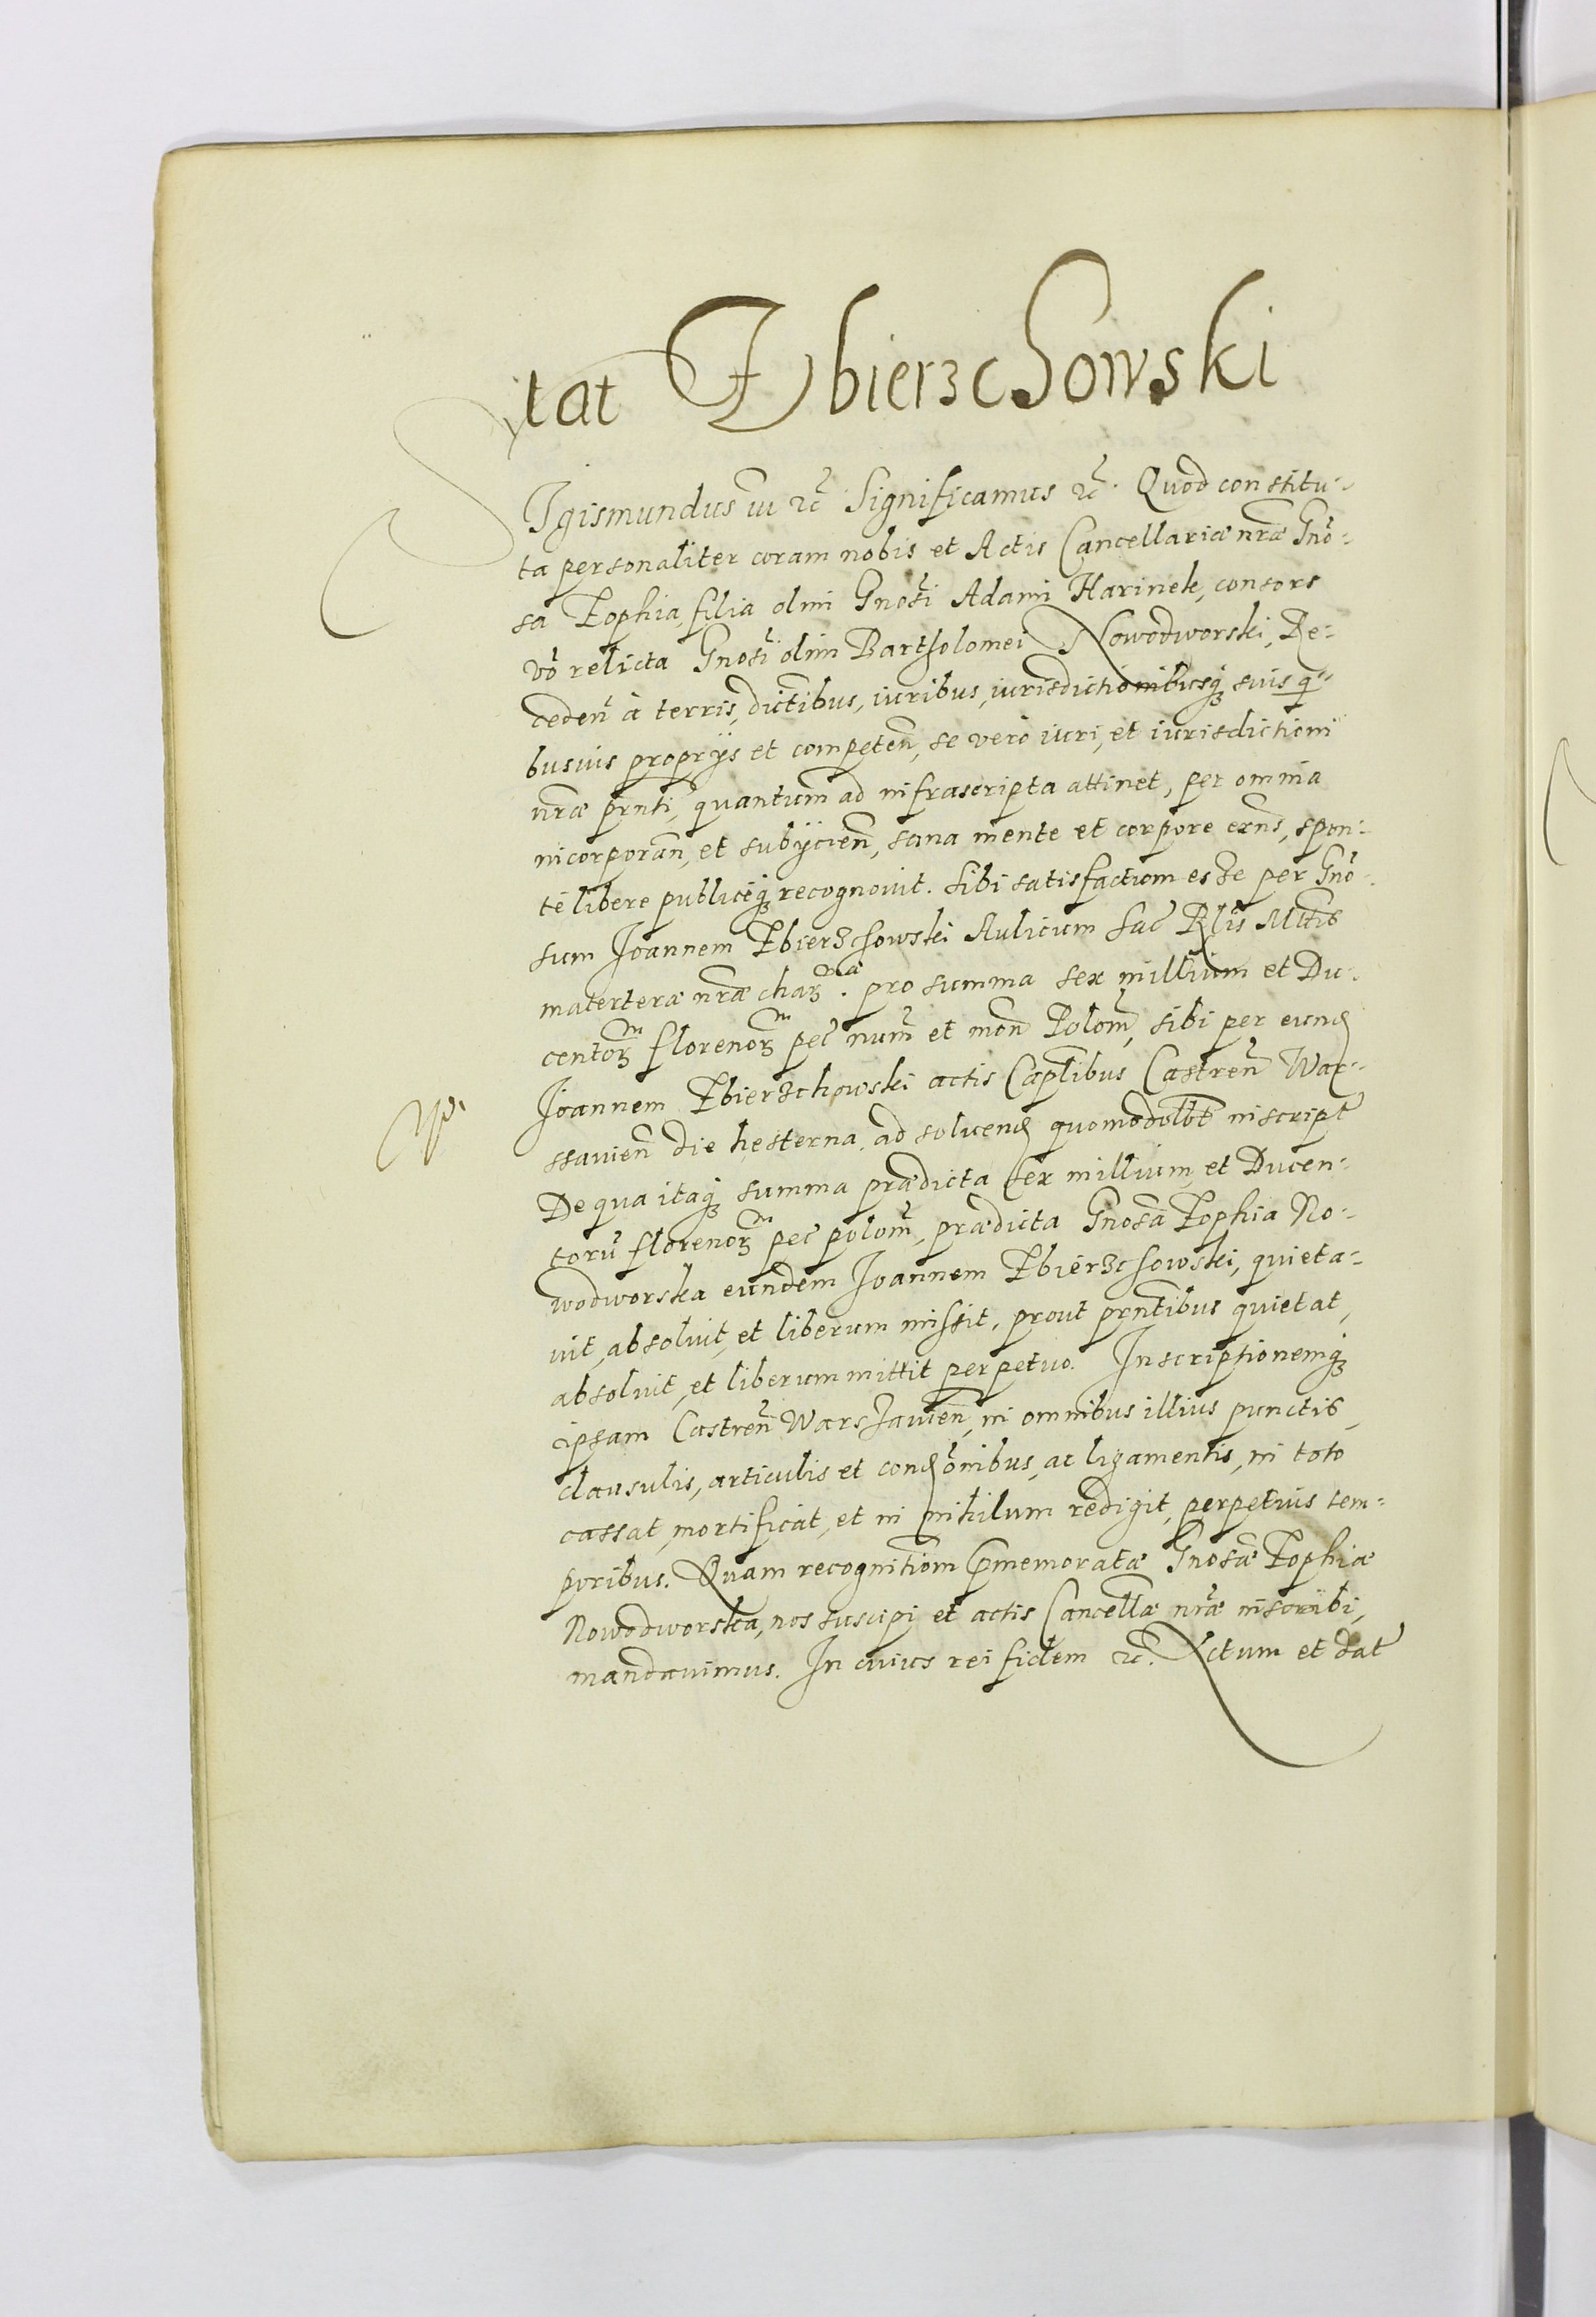 tat Zbierzchowski
Sigismundus III etc̃ Significamus etc̃. Quod constitu-
ta personaliter coram nobis et Actis Cancellariæ nr̃æ Gñо-
sa Zophia, filia olim Gnosi Adami Harinek, consors
võ relicta Gnosi olim Bartholomei Nowodworski, Re-
ceden̄ à terris, dictibus, iuribus, iurisdictionibusq3 suis qi-
busuis proprijs et competen̄, se vero iuri, et iurisdictioni
nr̃æ prnti, quantum ad infrascripta attinet, per omnia
incorporan̄, et subijcien̄, sana mente et corpore exns, spon-
te libere publiceq3 recognouit. Sibi satisfactum esse per Gño-
sum Joannem Zbierzchowski Aulicum Sac̃ Rl̃is Mttis
materteræ nr̃æ char̃. pro summa sex millium et Du-
centor3 florenor3 pec̃ num̃ et mon̄ Polom̃, sibi per eund
Joannem Zbierzchowski actis Captlibus Castren̄ War-
ssauien̄ die hesterna, ad soluend quomodolbt inscript
De qua itaq3 summa prædicta sex millium et Ducen-
torũ florenor3 pec̃ polom̃, prædicta Gnosa Zophia No-
wodworska eundem Joannem Zbierzchowski, quieta-
uit, absoluit, et liberum missit, prout prntibus quietat,
absoluit, et liberum mittit perpetuo. Inscriptionemq3
ipsam Castren̄ Warszauien̄, in omnibus illius punctis,
clausulis, articulis et condõnibus, ac ligamentis, in toto
cassat, mortificat, et in nihilum redigit, perpetuis tem-
poribus. Quam recognitiom̄ præmemoratæ Gnosæ Zophiæ
Nowodworska, nos suscipi et actis Cancellæ nr̃æ inscribi,
mandauimus. In cuius rei fidem etc̃. Actum et dat̃